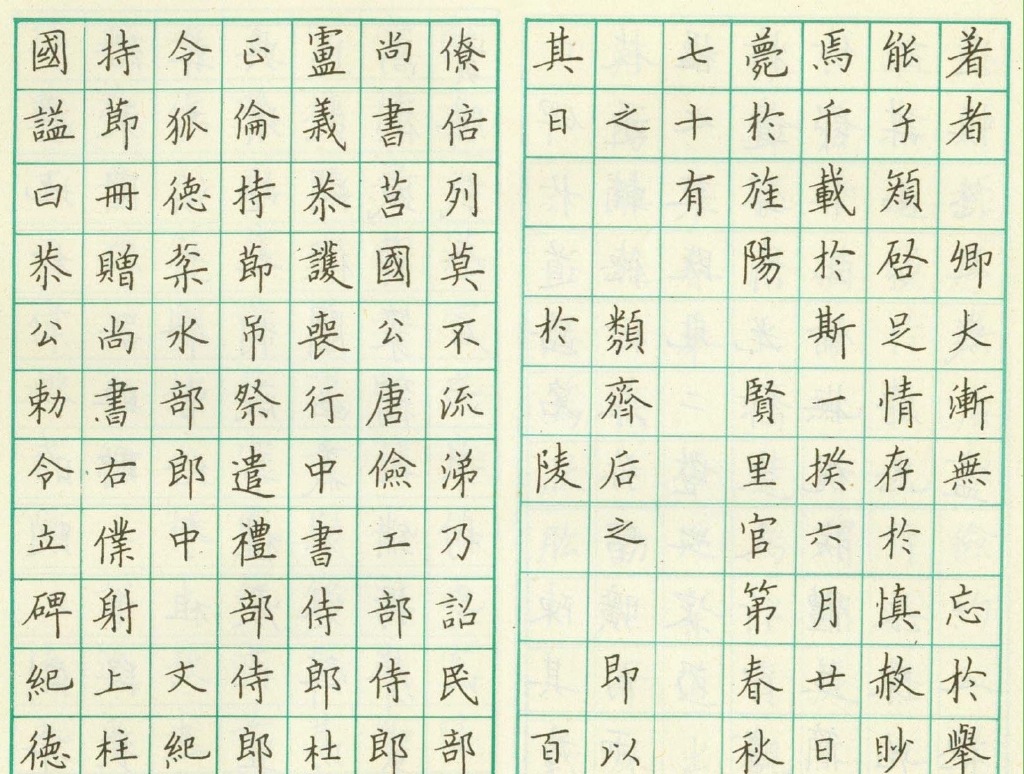 著者卿大漸無忘於舉
能子启足情存於慎赦眇
焉千載於斯一揆六月廿日
薨於旌陽賢里官第春秋
七十有
之類齊后之即以
其日於陵百
僚倍列莫不流涕乃詔民部
尚書莒國公唐儉工部侍郎
盧義恭護喪行中書侍郎杜
正倫持節吊祭遣禮部侍郎
令狐德棻水部郎中文紀
持節冊贈尚書右僕射上柱
國謚曰恭公勅令立碑紀德